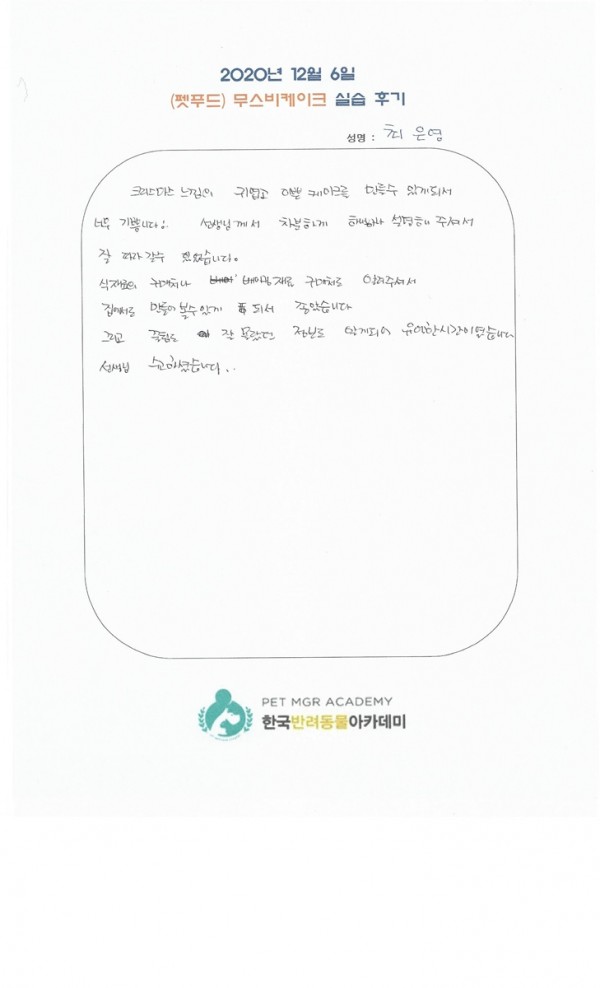 2020년 12월 6일
(펫푸드) 무스비케이크 실습 후기
성명 : 최은영
크리스마스 느낌의 귀엽고 이쁜 케이크를 만들수 있게되서
너무 기쁩니다! 선생님께서 차분하게 하나하나 설명해 주셔서
잘 따라갈수 있었습니다.
식재료의 구매처나 베이킹재료 구매처도 알려주셔서
집에서도 만들어볼수있게 되서 좋았습니다
그리고 꿀팁도 잘 몰랐던 정보도 알게되어 유익한시간이였습니다
선생님 수고하셨습니다..
PET MGR ACADEMY
한국반려동물아카데미